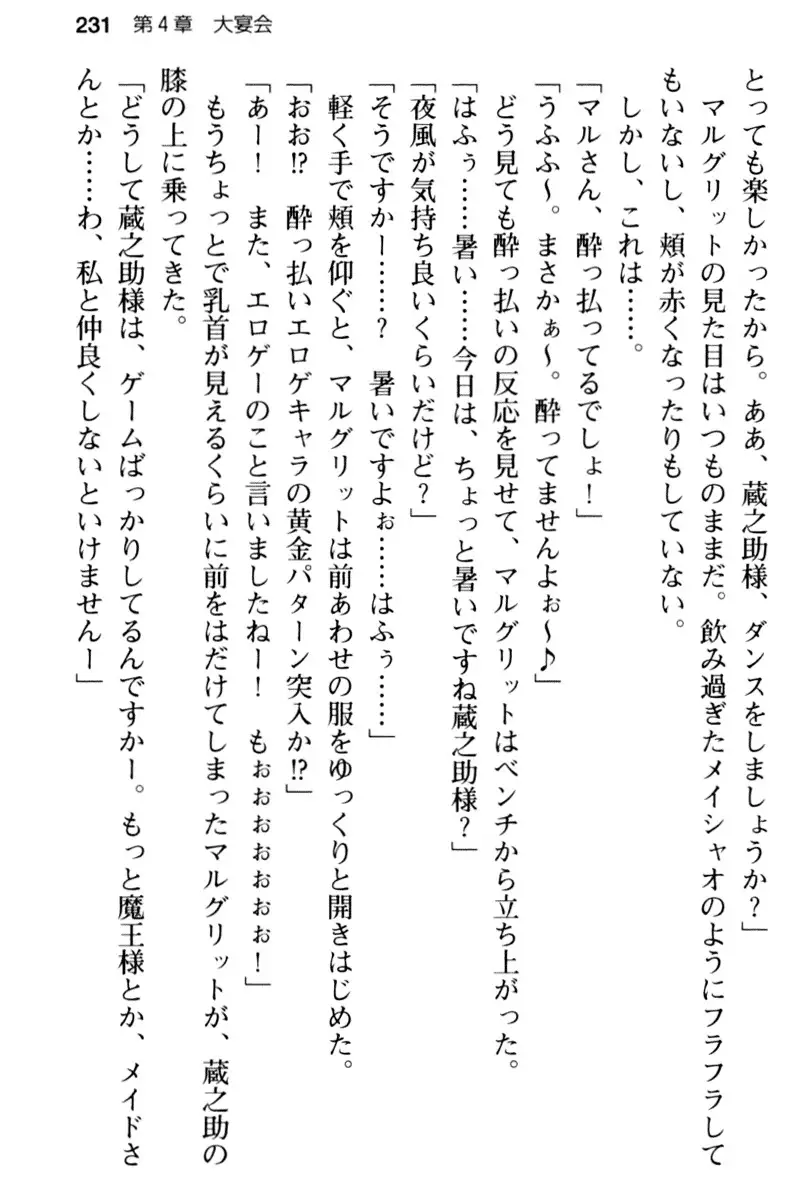 231 第4章 大宴会
とっても楽しかったから。ああ、蔵之助様、ダンスをしましょうか?」
マルグリットの見た目はいつものままだ。飲み過ぎたメイシャオのようにフラフラして
もいないし、頬が赤くなったりもしていない。
しかし、これは……。
「マルさん、酔っ払ってるでしょ!」
「うふふ〜。まさかぁ〜。酔ってませんよぉ〜♪」
どう見ても酔っ払いの反応を見せて、マルグリットはベンチから立ち上がった。
「はふぅ……暑い……今日は、ちょっと暑いですね蔵之助様?」
「夜風が気持ち良いくらいだけど?」
「そうですかー……? 暑いですよぉ……はふぅ……」
軽く手で頬を仰ぐと、マルグリットは前あわせの服をゆっくりと開きはじめた。
「おお!? 酔っ払いエロゲキャラの黄金パターン突入か!?」
「あー! また、エロゲーのこと言いましたねー! もぉぉぉぉぉぉぉ!」
もうちょっとで乳首が見えるくらいに前をはだけてしまったマルグリットが、蔵之助の
膝の上に乗ってきた。
「どうして蔵之助様は、ゲームばっかりしてるんですかー。もっと魔王様とか、メイドさ
んとか……わ、私と仲良くしないといけませんー」